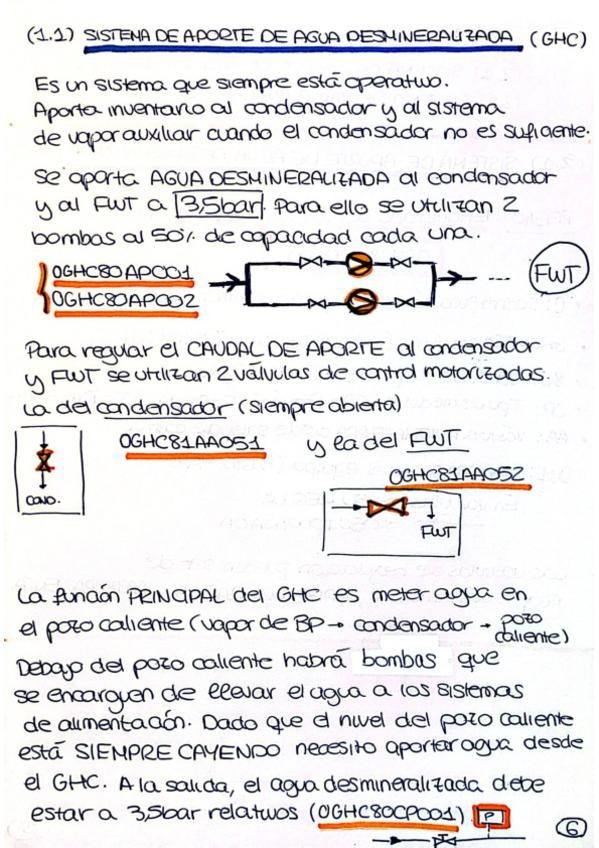 (1.1) SISTEMA DE APORTE DE AGUA DESMINERALIZADA (GHC)
Es un sistema que siempre está operativo.
Aporta inventario al condensador y al sistema
de vapor auxiliar cuando el condensador no es suficiente.
Se aporta AGUA DESMINERALIZADA al condensador
y al FWT a 3,5bar. Para ello se utilizan 2
bombas al 50% de capacidad cada una.
0GHC80AP001
0GHC80AP002
... FWT
Para regular el CAUDAL DE APORTE al condensador
y FWT se utilizan 2 válvulas de control motorizadas.
La del condensador (siempre abierta)
0GHC81AA051 y la del FWT
0GHC81AA052
COND.
FWT
La función PRINCIPAL del GHC es meter agua en
el pozo caliente (vapor de BP → condensador → pozo
caliente)
Debajo del pozo caliente habrá bombas que
se encarguen de llevar el agua a los sistemas
de alimentación. Dado que el nivel del pozo caliente
está SIEMPRE CAYENDO necesito aportar agua desde
el GHC. A la salida, el agua desmineralizada debe
estar a 3,5bar relativos (0GHC80CP001) P
6